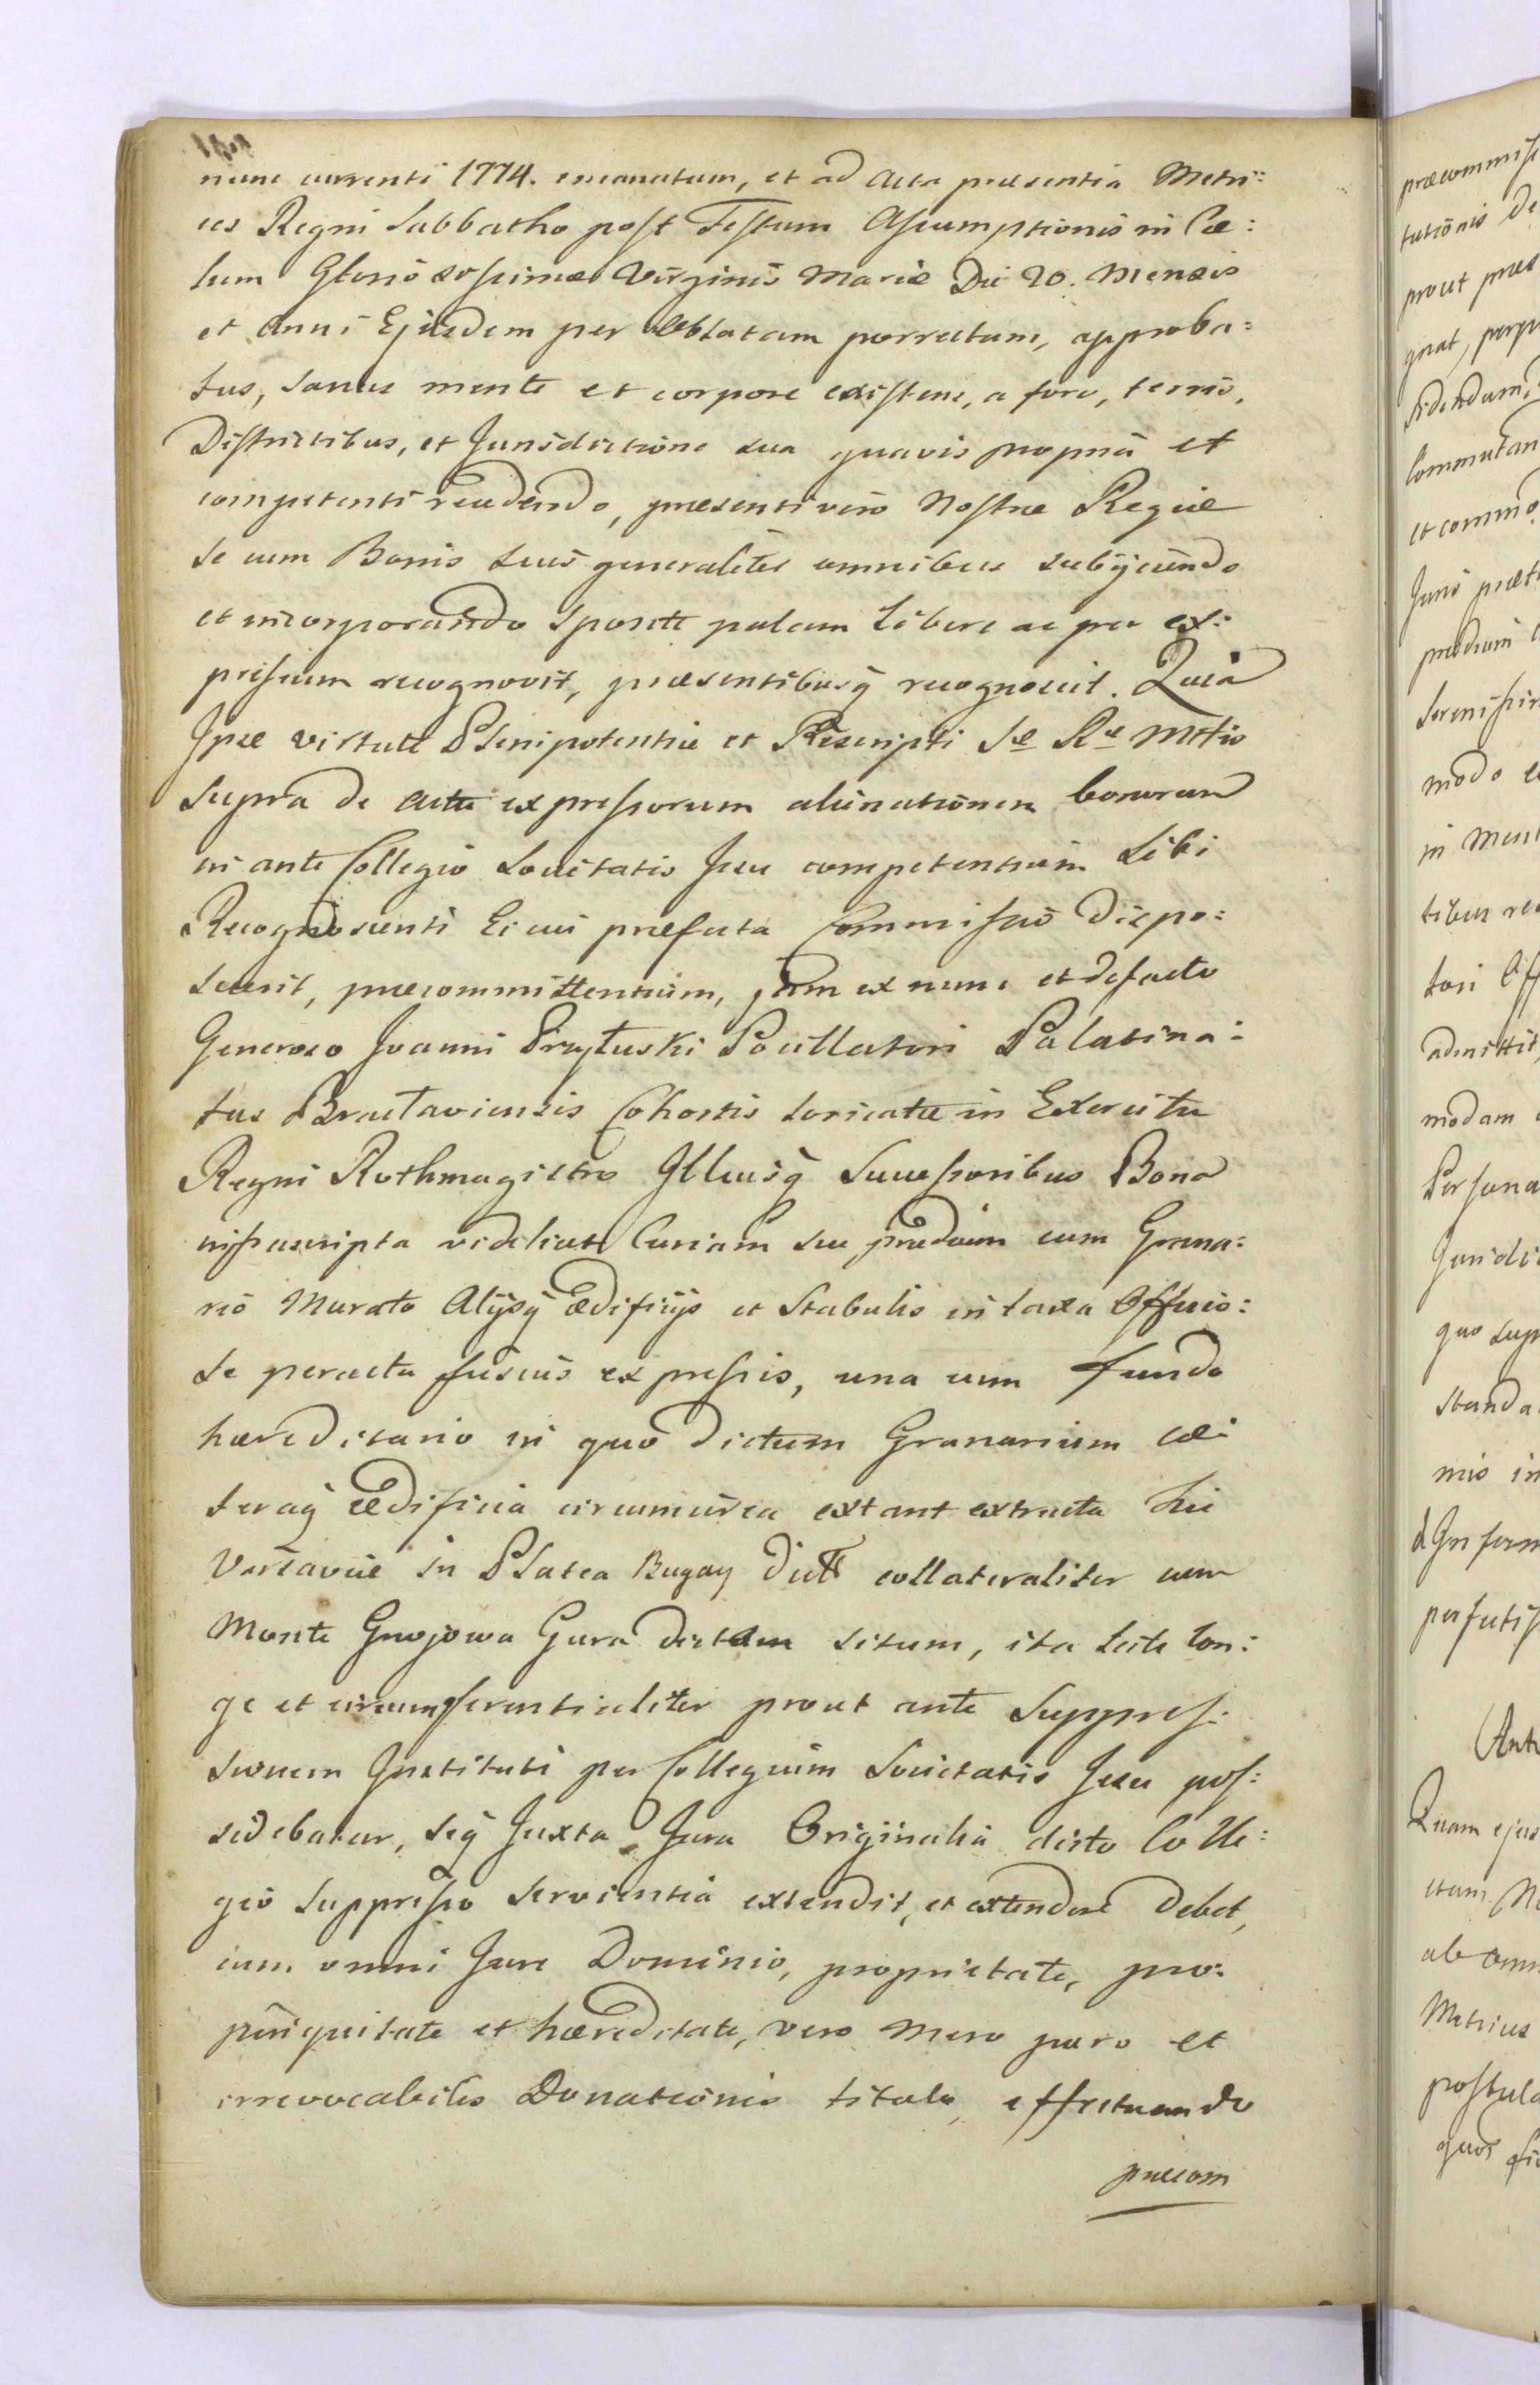 nunc currenti 1774. emanatum, et ad Acta præsentia Metri:
ces Regni Sabbatho post Festum Assumptionis in Cæ:
lum Gloriosissimæ Virginis Mariæ Die 20. Mensis
et Anni Ejusdem per Oblatam porrectum, approba:
tus, sanus mente et corpore existens, a foro, terris,
Districtibus, et Jurisdictione sua quavis propria et
competenti recedendo, præsenti vero Nostræ Regiæ
se cum Bonis suis generaliter omnibus subijciendo
et incorporando sponte palam libere ac per ex:
pressum recognovit, præsentibusq recognoscit. Quia
Ipse virtute Plenipotentiæ et Rescripti Sæ Ræ Mttis
supra de Actu expressorum alienationem bonorum
in ante Collegio Societatis Jesu competentium Sibi
Recognoscenti Eicui præfata Commissio dispo:
suerit, præcommittentium, jam ex nunc et de facto
Generoso Joanni Przyłuski Pocillatori Palatina:
tus Bracłaviensis Cohortis loricatæ in Exercitu
Regni Rothmagistro Illiusq Successoribus Bona
infrascripta videlicet Curiam seu prædium cum Grana:
rio Murato Alijsq ædificijs et Stabulis in taxa Officio:
se peracta fusius expressis, una cum fundo
hæreditario in quo dictum Granarium cæ:
teraq ædificia circumcirca extant extructa hic
Varsaviæ in Platea Bugay dict collateraliter cum
Monte Gnojowa Gura dictam situm, ita late lon:
ge et circumferentialiter prout ante Suppres:
sionem Instituti per Collegium Societatis Jesu pos:
sidebatur, seq Juxta Jura Originalia dicto Colle:
gio Suppresso servientia extendit, et extendere debet,
cum omni Jure Dominio, proprietate, pro:
pinquitate et hæreditate, vero mero puro et
irrevocabilis Donationis titulo, effectuando
præcom